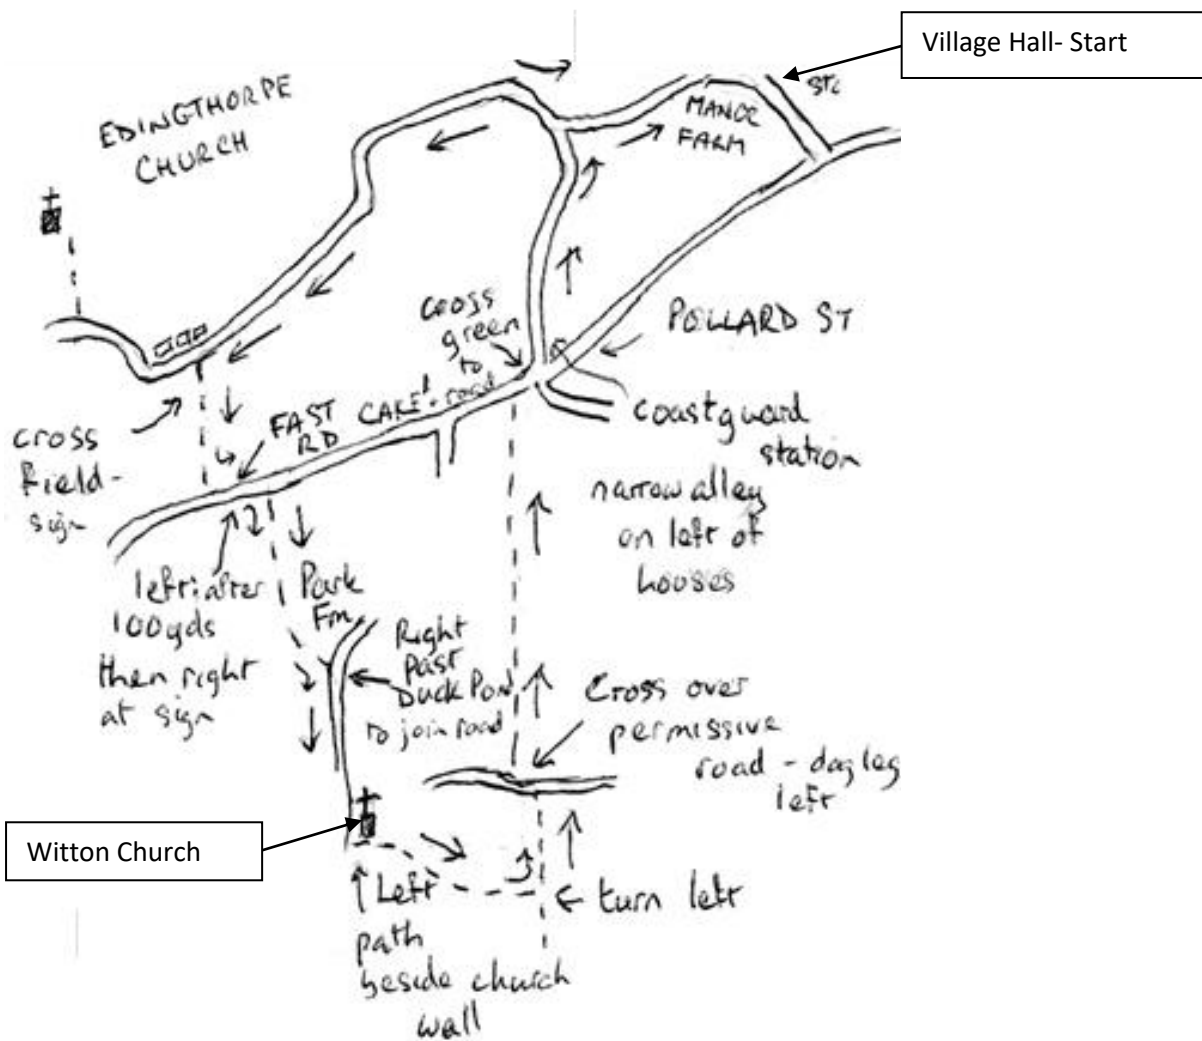 Village Hall- Start
EDINGTHORPE
CHURCH
MANOR
FARM
cross
green
to
road
POLLARD ST
FAST
RD
CARE!
coastguard
station
cross
field-
sign
narrow alley
on left of
houses
left: after
100yds
then right
at sign
Park
Fm
Right
Past
DUCK PON
to join road
Cross over
permissive
road - dog leg
left
Witton Church
Left
path
beside church
wall
turn left